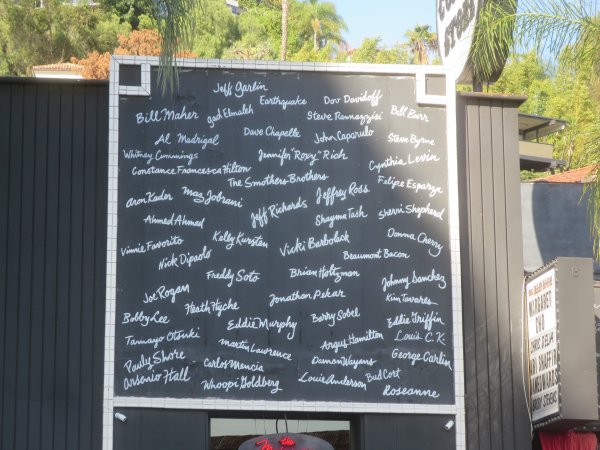 Jeff Garlin
Earthquake
Dov Davidoff
Bill Maher
Gad Elmaleh
Steve Rannazzisi
Bill Burr
Al Madrigal
Dave Chapelle
John Caparulo
Steve Byrne
Whitney Cummings
Jennifer "Roxy" Rich
Cynthia Levin
Constance Francesca Hilton
The Smothers Brothers
Felipe Esparza
Aron Kader
Maz Jobrani
Jeffrey Ross
Jeff Richards
Shayma Tash
Sherri Shepherd
Ahmed Ahmed
Donna Cherry
Vinnie Favorito
Kelly Kirsten
Vicki Barbolack
Nick Dipaolo
Beaumont Bacon
Freddy Soto
Brian Holtzman
Johnny Sanchez
Joe Rogan
Jonathan Pekar
Kim Tavares
Heath Hyche
Bobby Lee
Eddie Murphy
Barry Sobel
Eddie Griffin
Tamayo Otsuki
Martin Lawrence
Argus Hamilton
Louis C.K.
Pauly Shore
Carlos Mencia
Damon Wayans
George Carlin
Arsenio Hall
Whoopi Goldberg
Louie Anderson
Bud Cort
Roseanne
In the
STORE
MARGARET
CHO